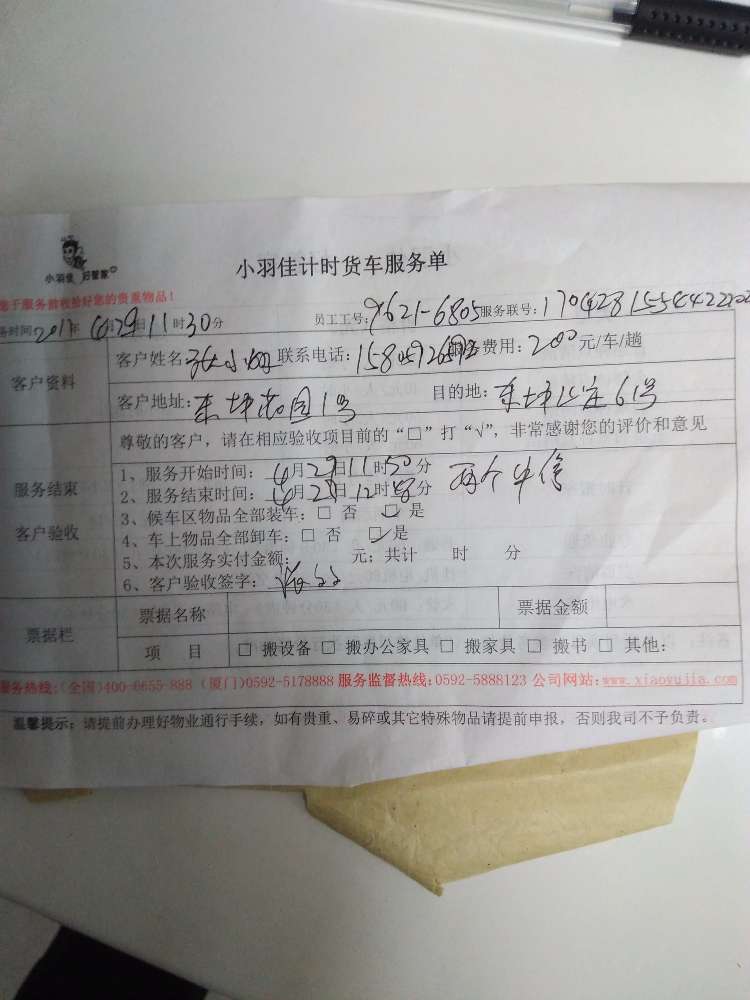 小羽佳 好管家
小羽佳计时货车服务单
您于服务前收拾好您的贵重物品！
务时间2017年4月29日11时30分 员工工号：9621-6805服务联号：170428155442220
客户资料
客户姓名： 联系电话： 服务费用：200元/车/趟
客户地址： 1号 目的地： 61号
服务结束
客户验收
尊敬的客户，请在相应验收项目前的“□”打“√”，非常感谢您的评价和意见
1、服务开始时间：4月29日11时50分
2、服务结束时间：4月29日12时 分
3、候车区物品全部装车：□ 否 ☑ 是
4、车上物品全部卸车：□ 否 ☑ 是
5、本次服务实付金额： 元；共计 时 分
6、客户验收签字：
票据栏
票据名称 票据金额
项 目 □ 搬设备 □ 搬办公家具 □ 搬家具 □ 搬书 □ 其他：
服务热线：(全国)400-6655-888 (厦门)0592-5178888 服务监督热线：0592-5888123 公司网站：www.xiaoyujia.com
温馨提示：请提前办理好物业通行手续，如有贵重、易碎或其它特殊物品请提前申报，否则我司不予负责。